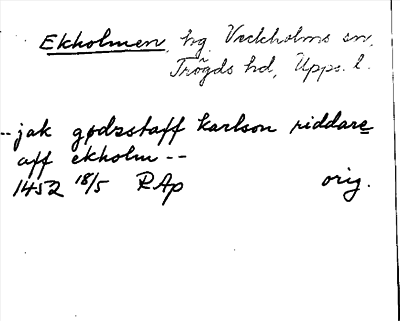 Ekholmen, hg, Veckholms sn,
Trögds hd, Upps. l.
-- jak gødzstaff karlson riddare
aff ekholm --
1452 18/5 RAp orig.